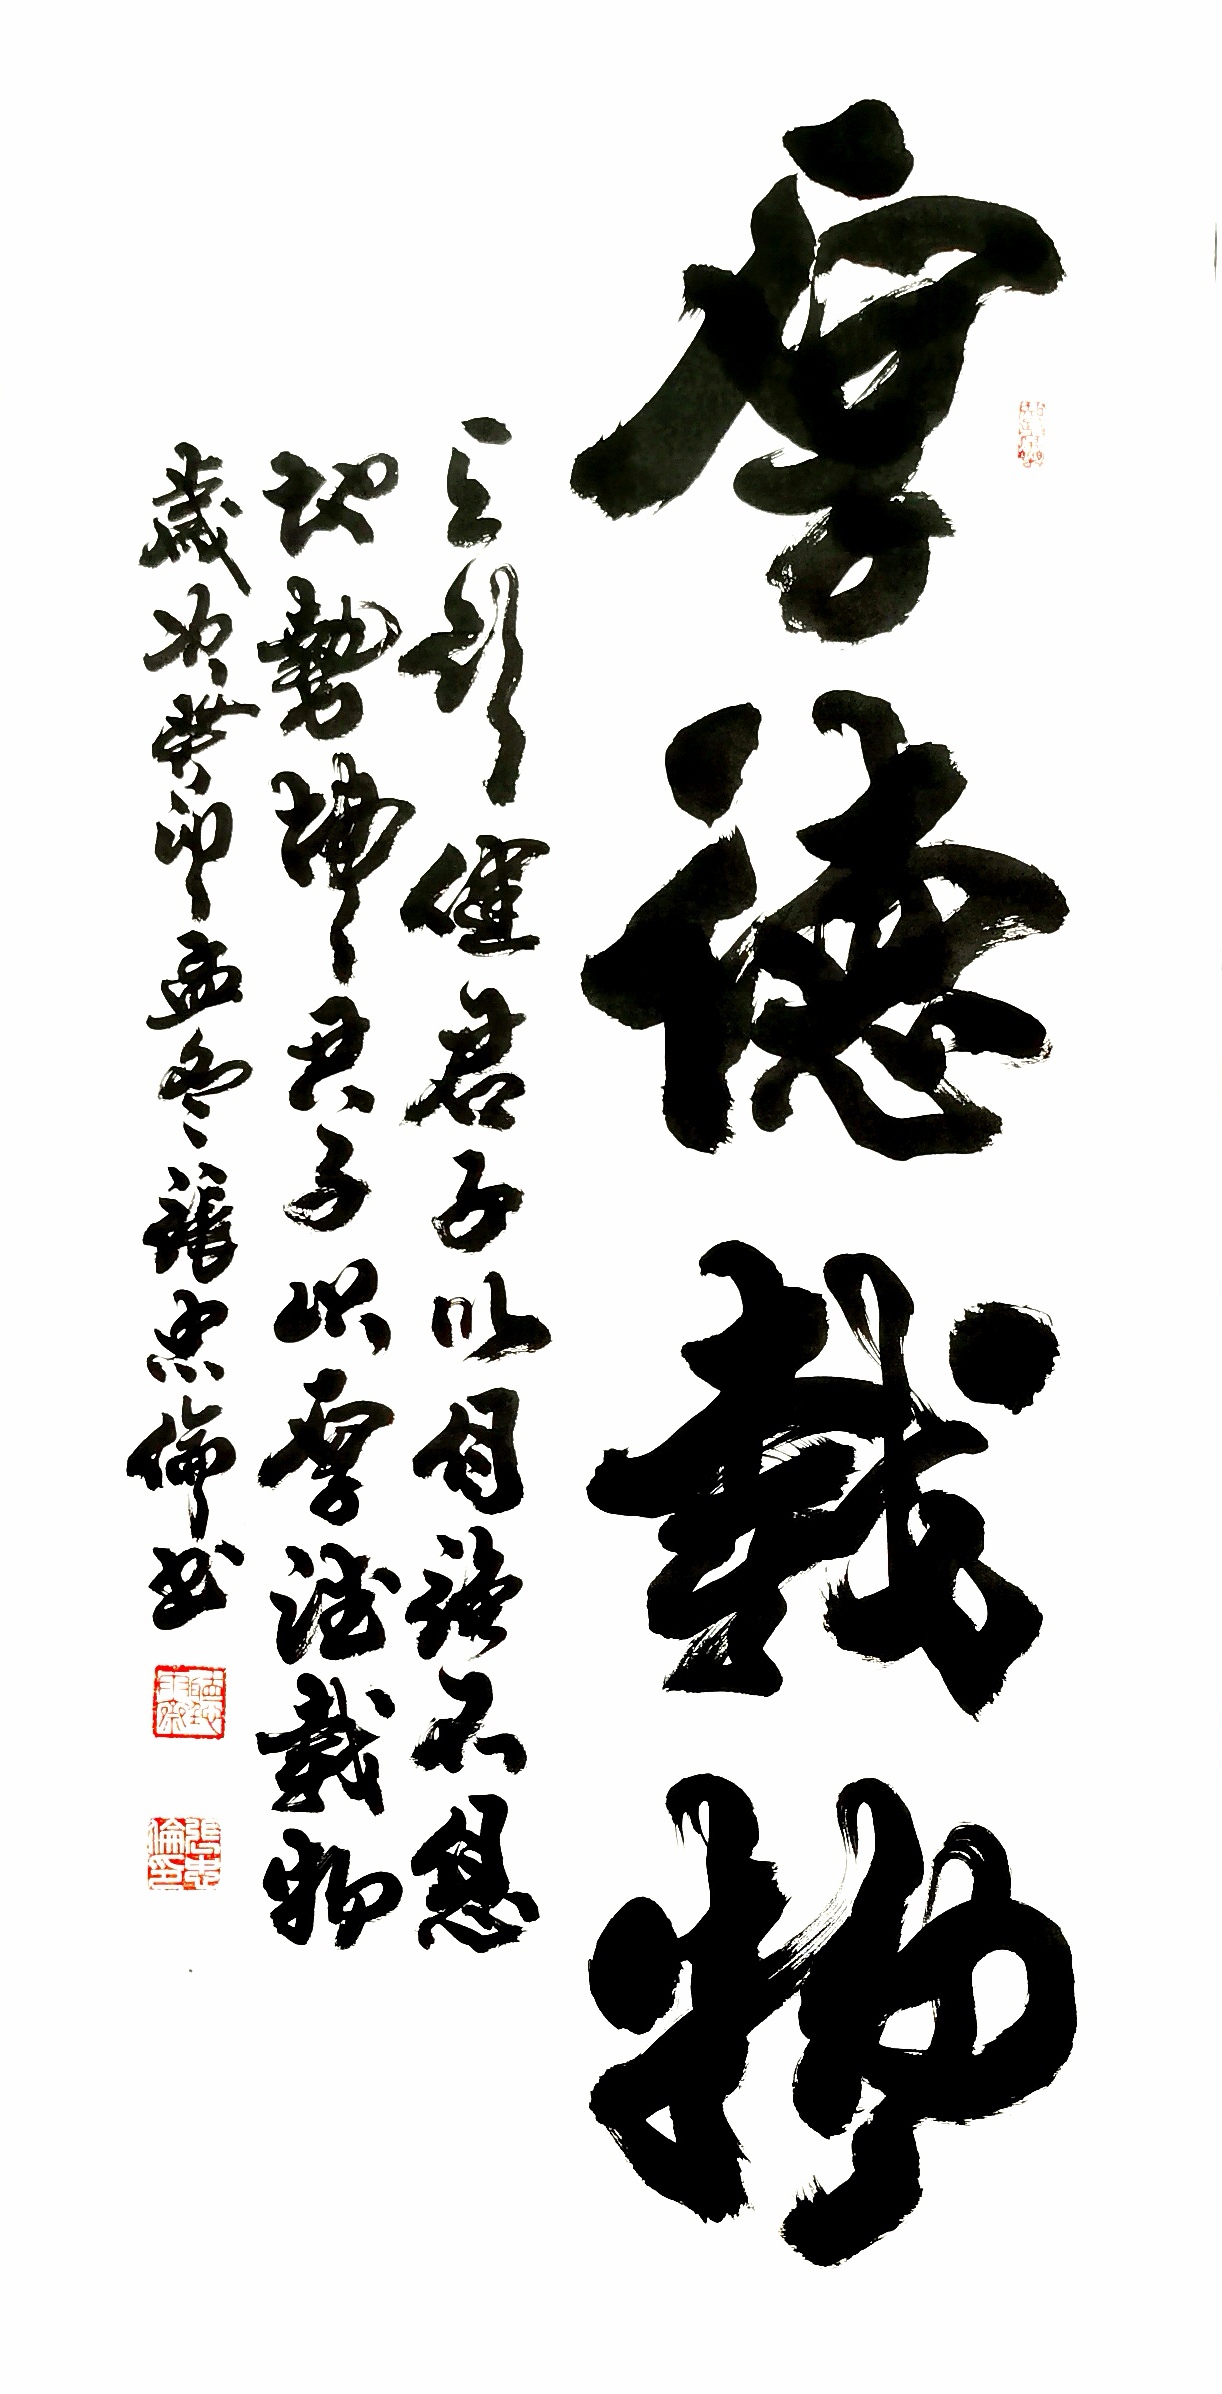 厚德載物
天行健君子以自強不息
地勢坤君子以厚德載物
歲次癸卯孟冬張忠倫書
張忠倫印